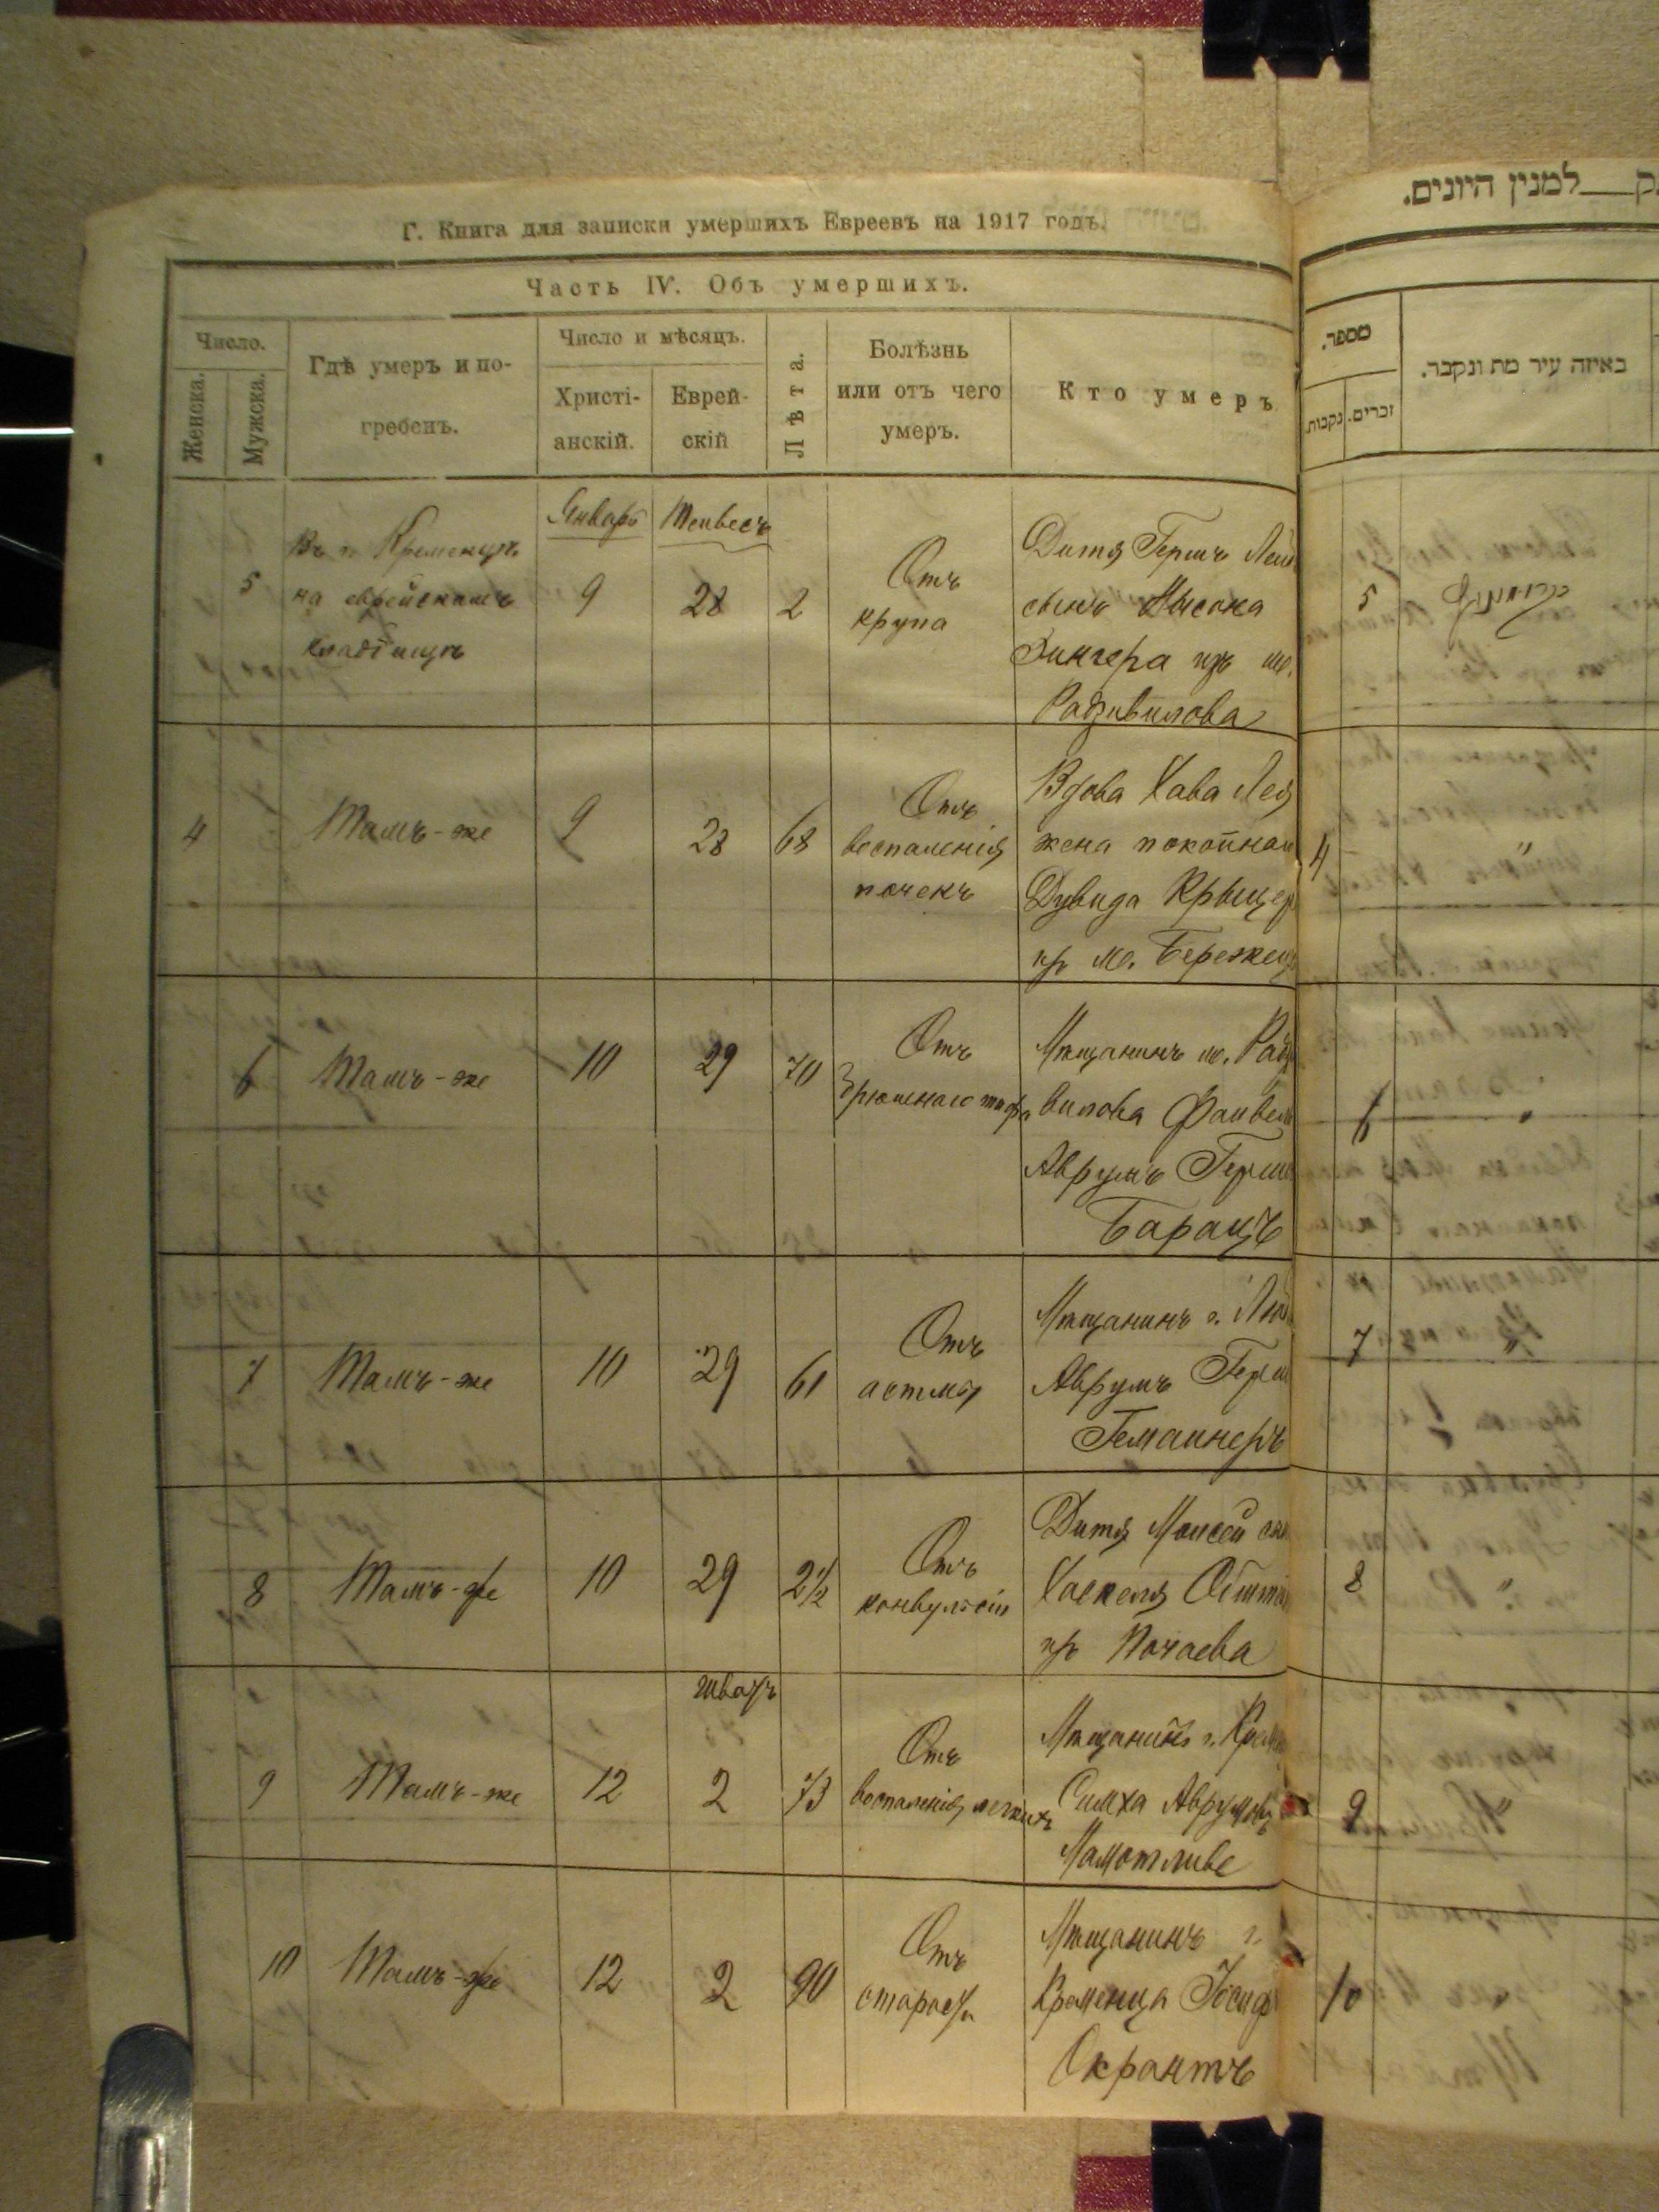 Г. Книга для записки умершихъ Евреевъ на 1917 годъ.
Часть IV. Объ умершихъ.
Число.
Женска.
Мужска.
Гдѣ умеръ и по-
гребенъ.
Число и мѣсяцъ.
Христі-
анскій.
Еврей-
скій
Лѣта.
Болѣзнь
или отъ чего
умеръ.
Кто умеръ
Январь
5
Въ г. Кременцѣ
на еврейскомъ
кладбищѣ
9
28
2
Отъ
крупа
Дитя Гершъ
сынъ
Зингера изъ м.
Радзивилова
4
Тамъ-же
9
28
68
Отъ
воспаленія
почекъ
Вдова Хава Лея
жена покойнаго
Дувида
изъ м. Бережец
6
Тамъ-же
10
29
70
Отъ
брюшнаго тифа
Мѣщанинъ м. Радзи
вилова Файвель
Аврумъ Герш
Барацъ
7
Тамъ-же
10
29
61
Отъ
астмы
Мѣщанинъ г.
Аврумъ Герш
8
Тамъ-же
10
29
2 1/2
Отъ
конвульсіи
Дитя Моисей сын
Хаскеля
изъ Почаева
шватъ
9
Тамъ-же
12
2
73
Отъ
воспаленія легкихъ
Мѣщанинъ г. Крем
Симха Аврумов
10
Тамъ-же
12
2
90
Отъ
старости
Мѣщанинъ г.
Кременца Іосиф
Окрантъ
למנין היונים.
מספר.
נקבות.
זכרים.
באיזה עיר מת ונקבר.
5
4 "
6 "
7 "
8 "
9 "
10 "